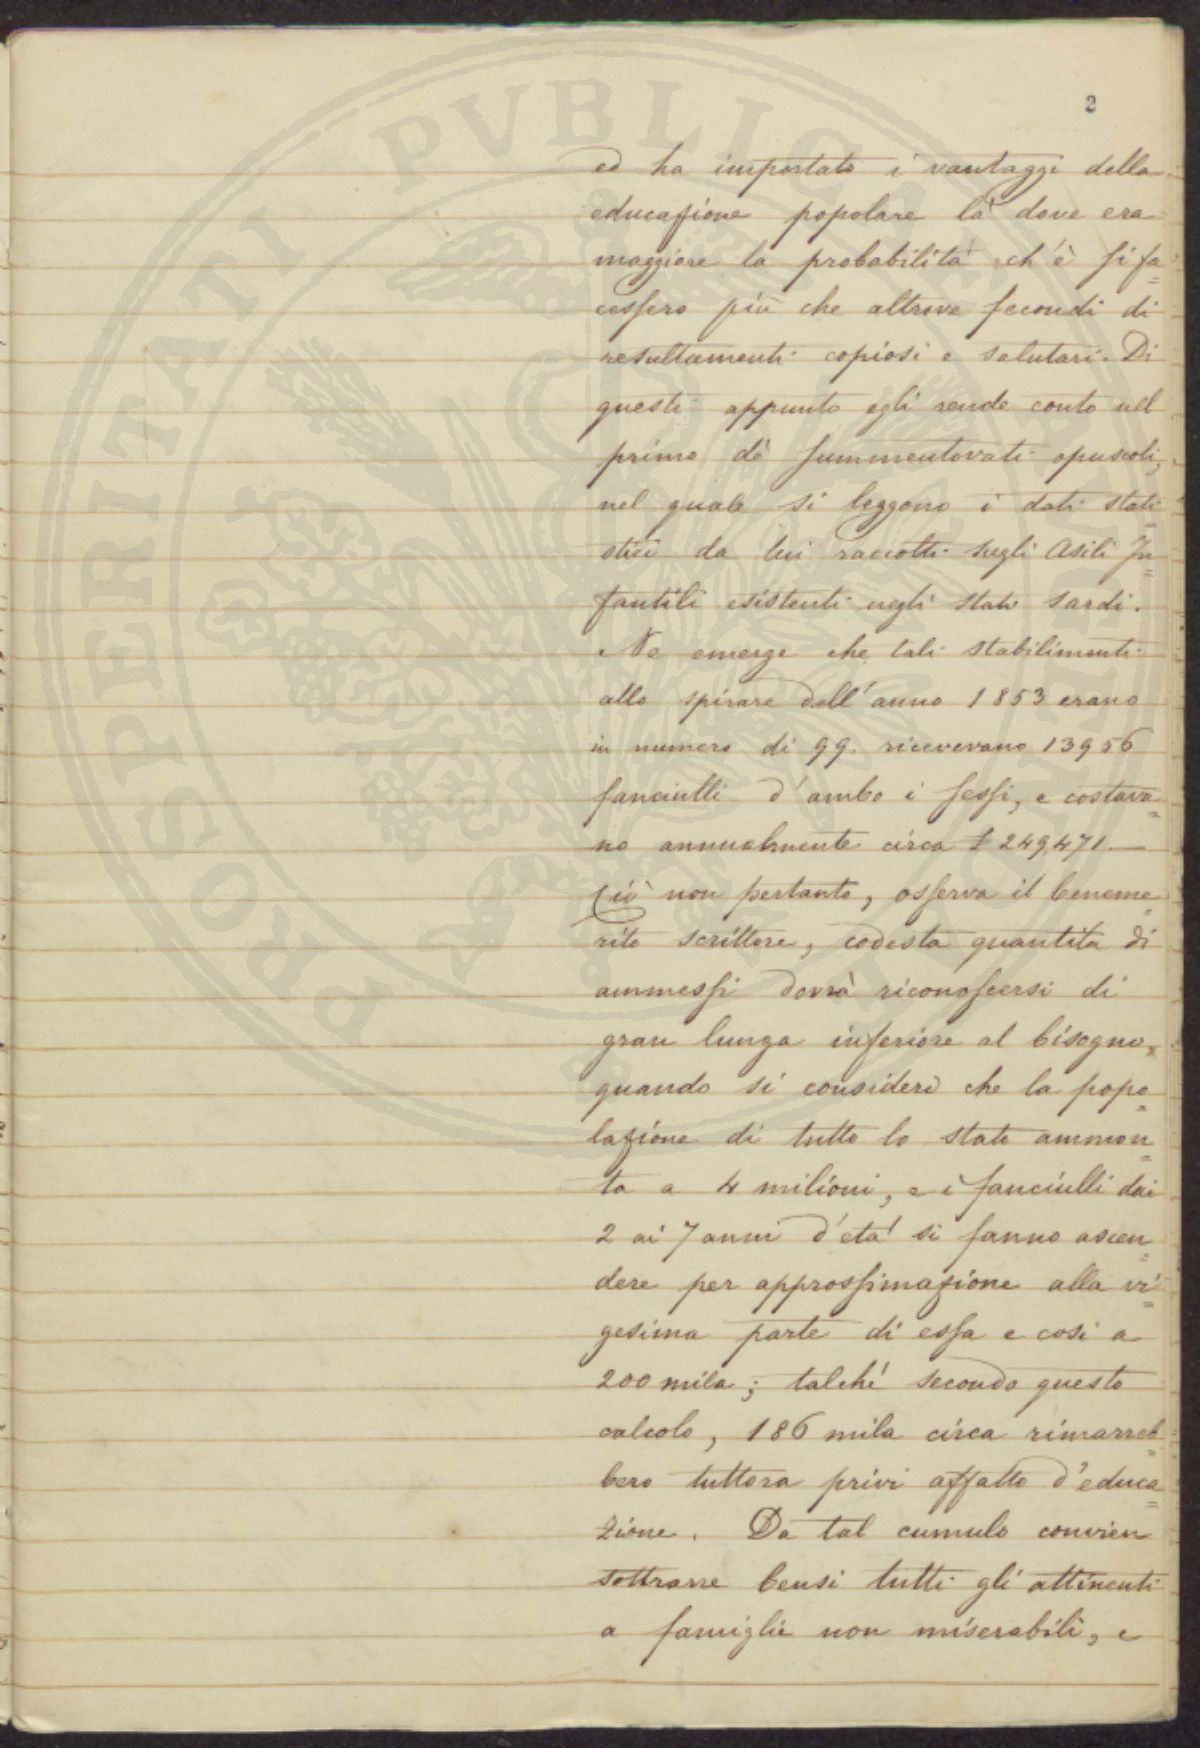 2
ed ha importato i vantaggi della
educazione popolare là dove era
maggiore la probabilità ch'è si fa=
cessero più che altrove fecondi di
resultamenti copiosi e salutari. Di
questi appunto egli rende conto nel
primo dè summentovati opuscoli,
nel quale si leggono i dati stati=
stici da lui raccolti sugli Asili In=
fantili esistenti negli stati sardi.
Ne emerge che tali stabilimenti
allo spirare dell'anno 1853 erano
in numero di 99. ricevevano 13956
fanciulli d'ambo i sessi, e costava=
no annualmente circa £ 249,471. —
Ciò non pertanto, osserva il beneme=
rito scrittore, codesta quantità di
ammessi dovrà riconoscersi di
gran lunga inferiore al bisogno,
quando si consideri che la popo=
lazione di tutto lo stato ammon=
ta a 4 milioni, e i fanciulli dai
2 ai 7 anni d'età si fanno ascen=
dere per approssimazione alla vi=
gesima parte di essa e così a
200 mila; talchè secondo questo
calcolo, 186 mila circa rimarreb=
bero tuttora privi affatto d'educa=
zione. Da tal cumulo convien
sottrarre bensì tutti gli attinenti
a famiglie non miserabili, e
PROSPERITATI PVBLICAE